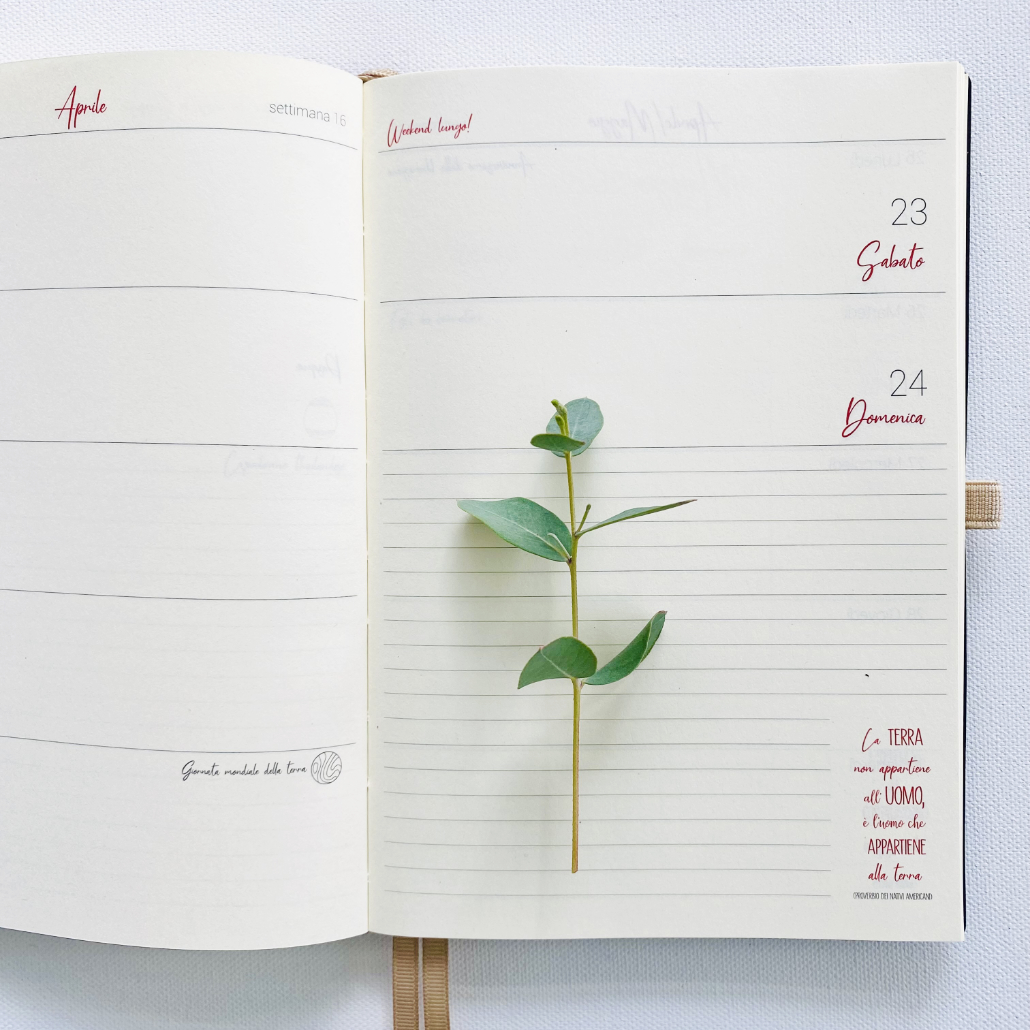 Aprile
settimana 16
Giornata mondiale della terra
Weekend lungo!
23
Sabato
24
Domenica
La TERRA
non appartiene
all' UOMO,
è l'uomo che
APPARTIENE
alla terra
(PROVERBIO DEI NATIVI AMERICANI)